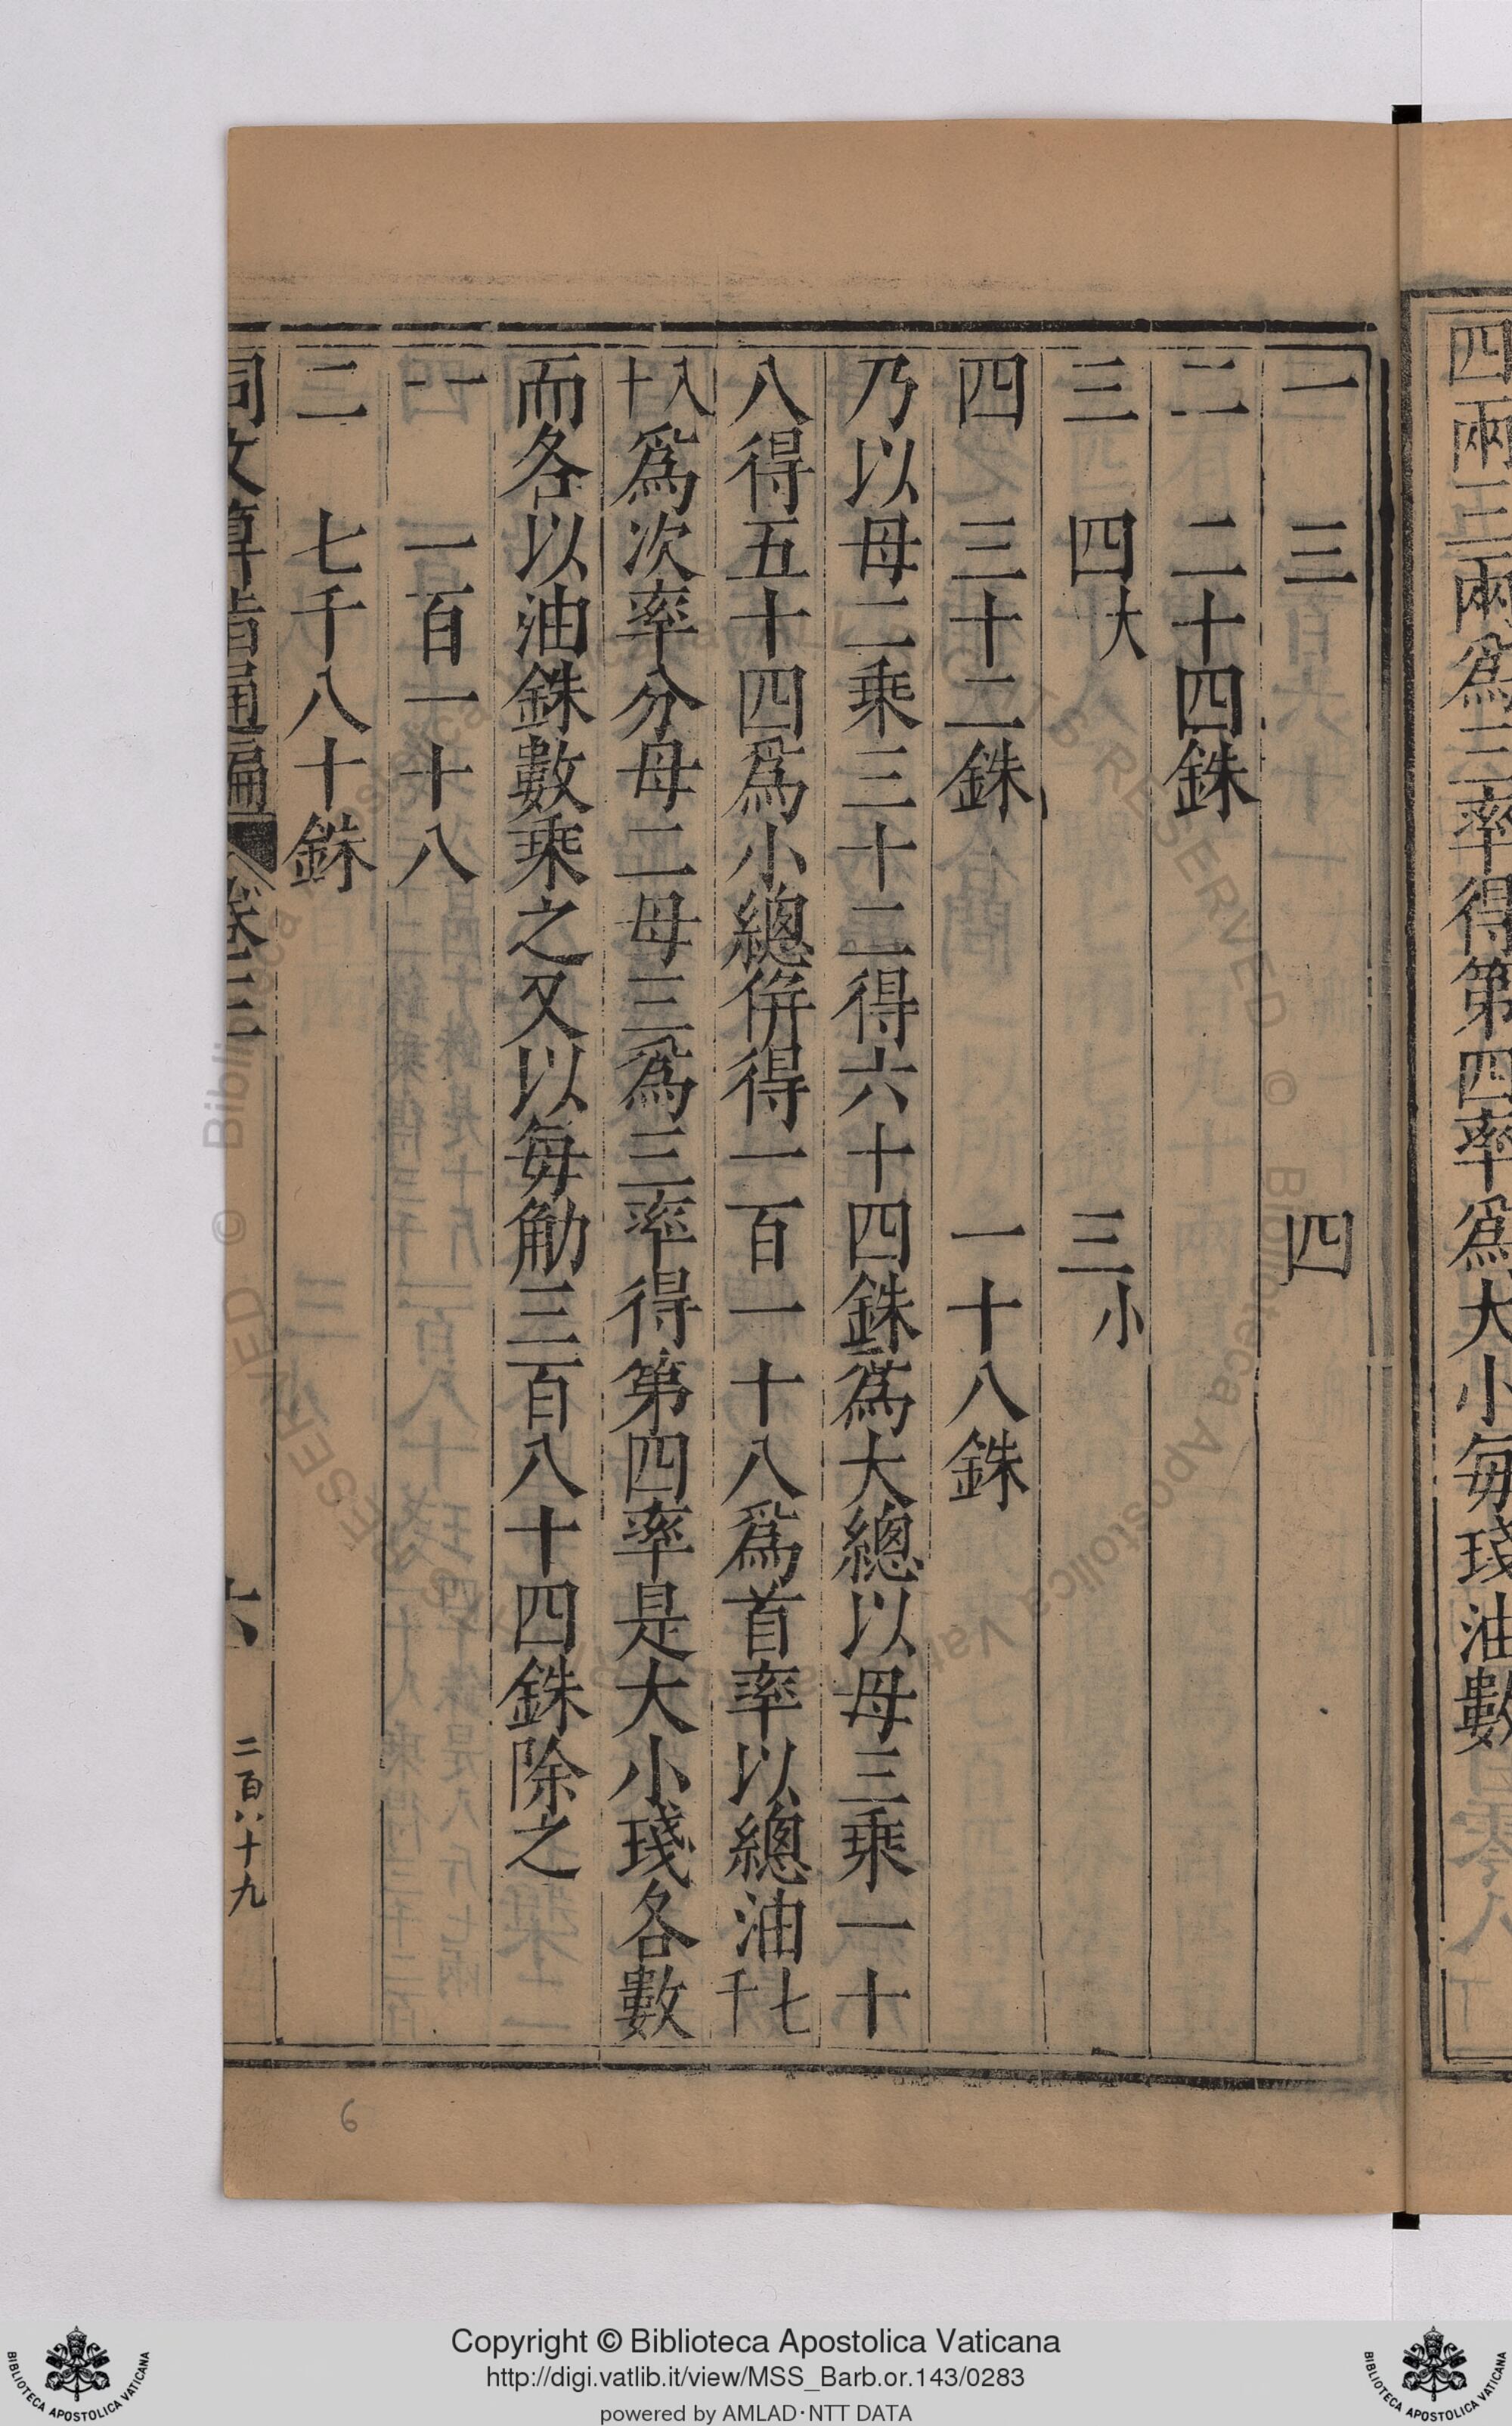 四兩三兩爲三率得第四率爲大小每琖油數
一 三 四
二 二十四銖
三 四大 三小
四 三十二銖 一十八銖
乃以母二乘三十二得六十四銖爲大總以母三乘一十
八得五十四爲小總併得一百一十八爲首率以總油七千
八十爲次率分母二母三爲三率得第四率是大小琖各數
而各以油銖數乘之又以每觔三百八十四銖除之
一 一百一十八
二 七千八十銖
同文算指通編 卷三 六 二百八十九
6
Copyright © Biblioteca Apostolica Vaticana
http://digi.vatlib.it/view/MSS_Barb.or.143/0283
powered by AMLAD·NTT DATA
BIBLIOTECA APOSTOLICA VATICANA
BIBLIOTECA APOSTOLICA VATICANA